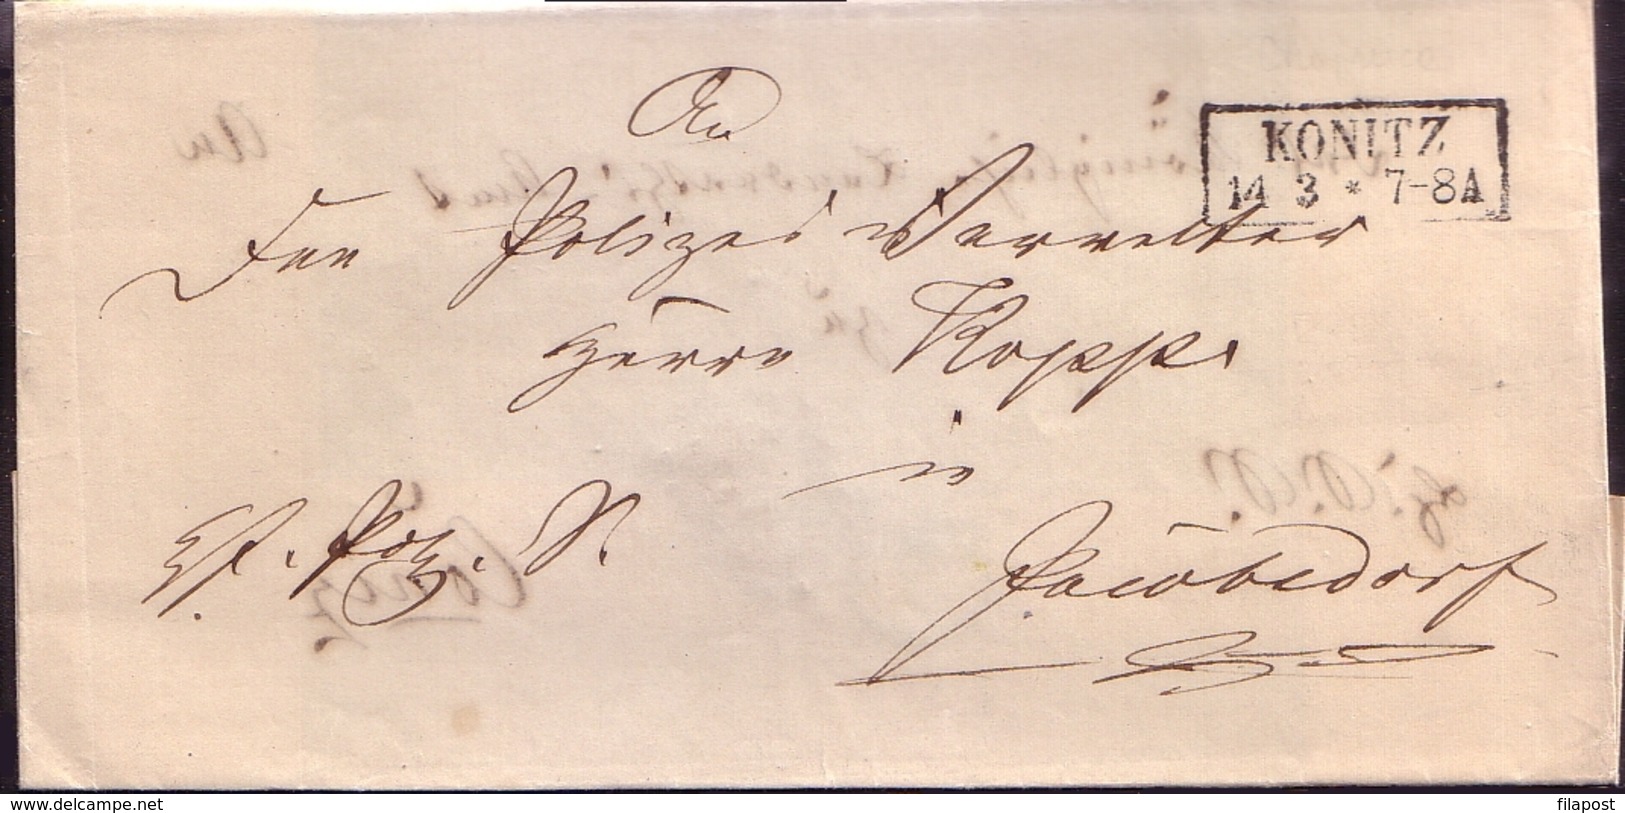 KONITZ
14 3 * 7-8A
An
Den Polizei Verwalter
Herrn Kopp
in
Jacobsdorf
www.delcampe.net
filapost